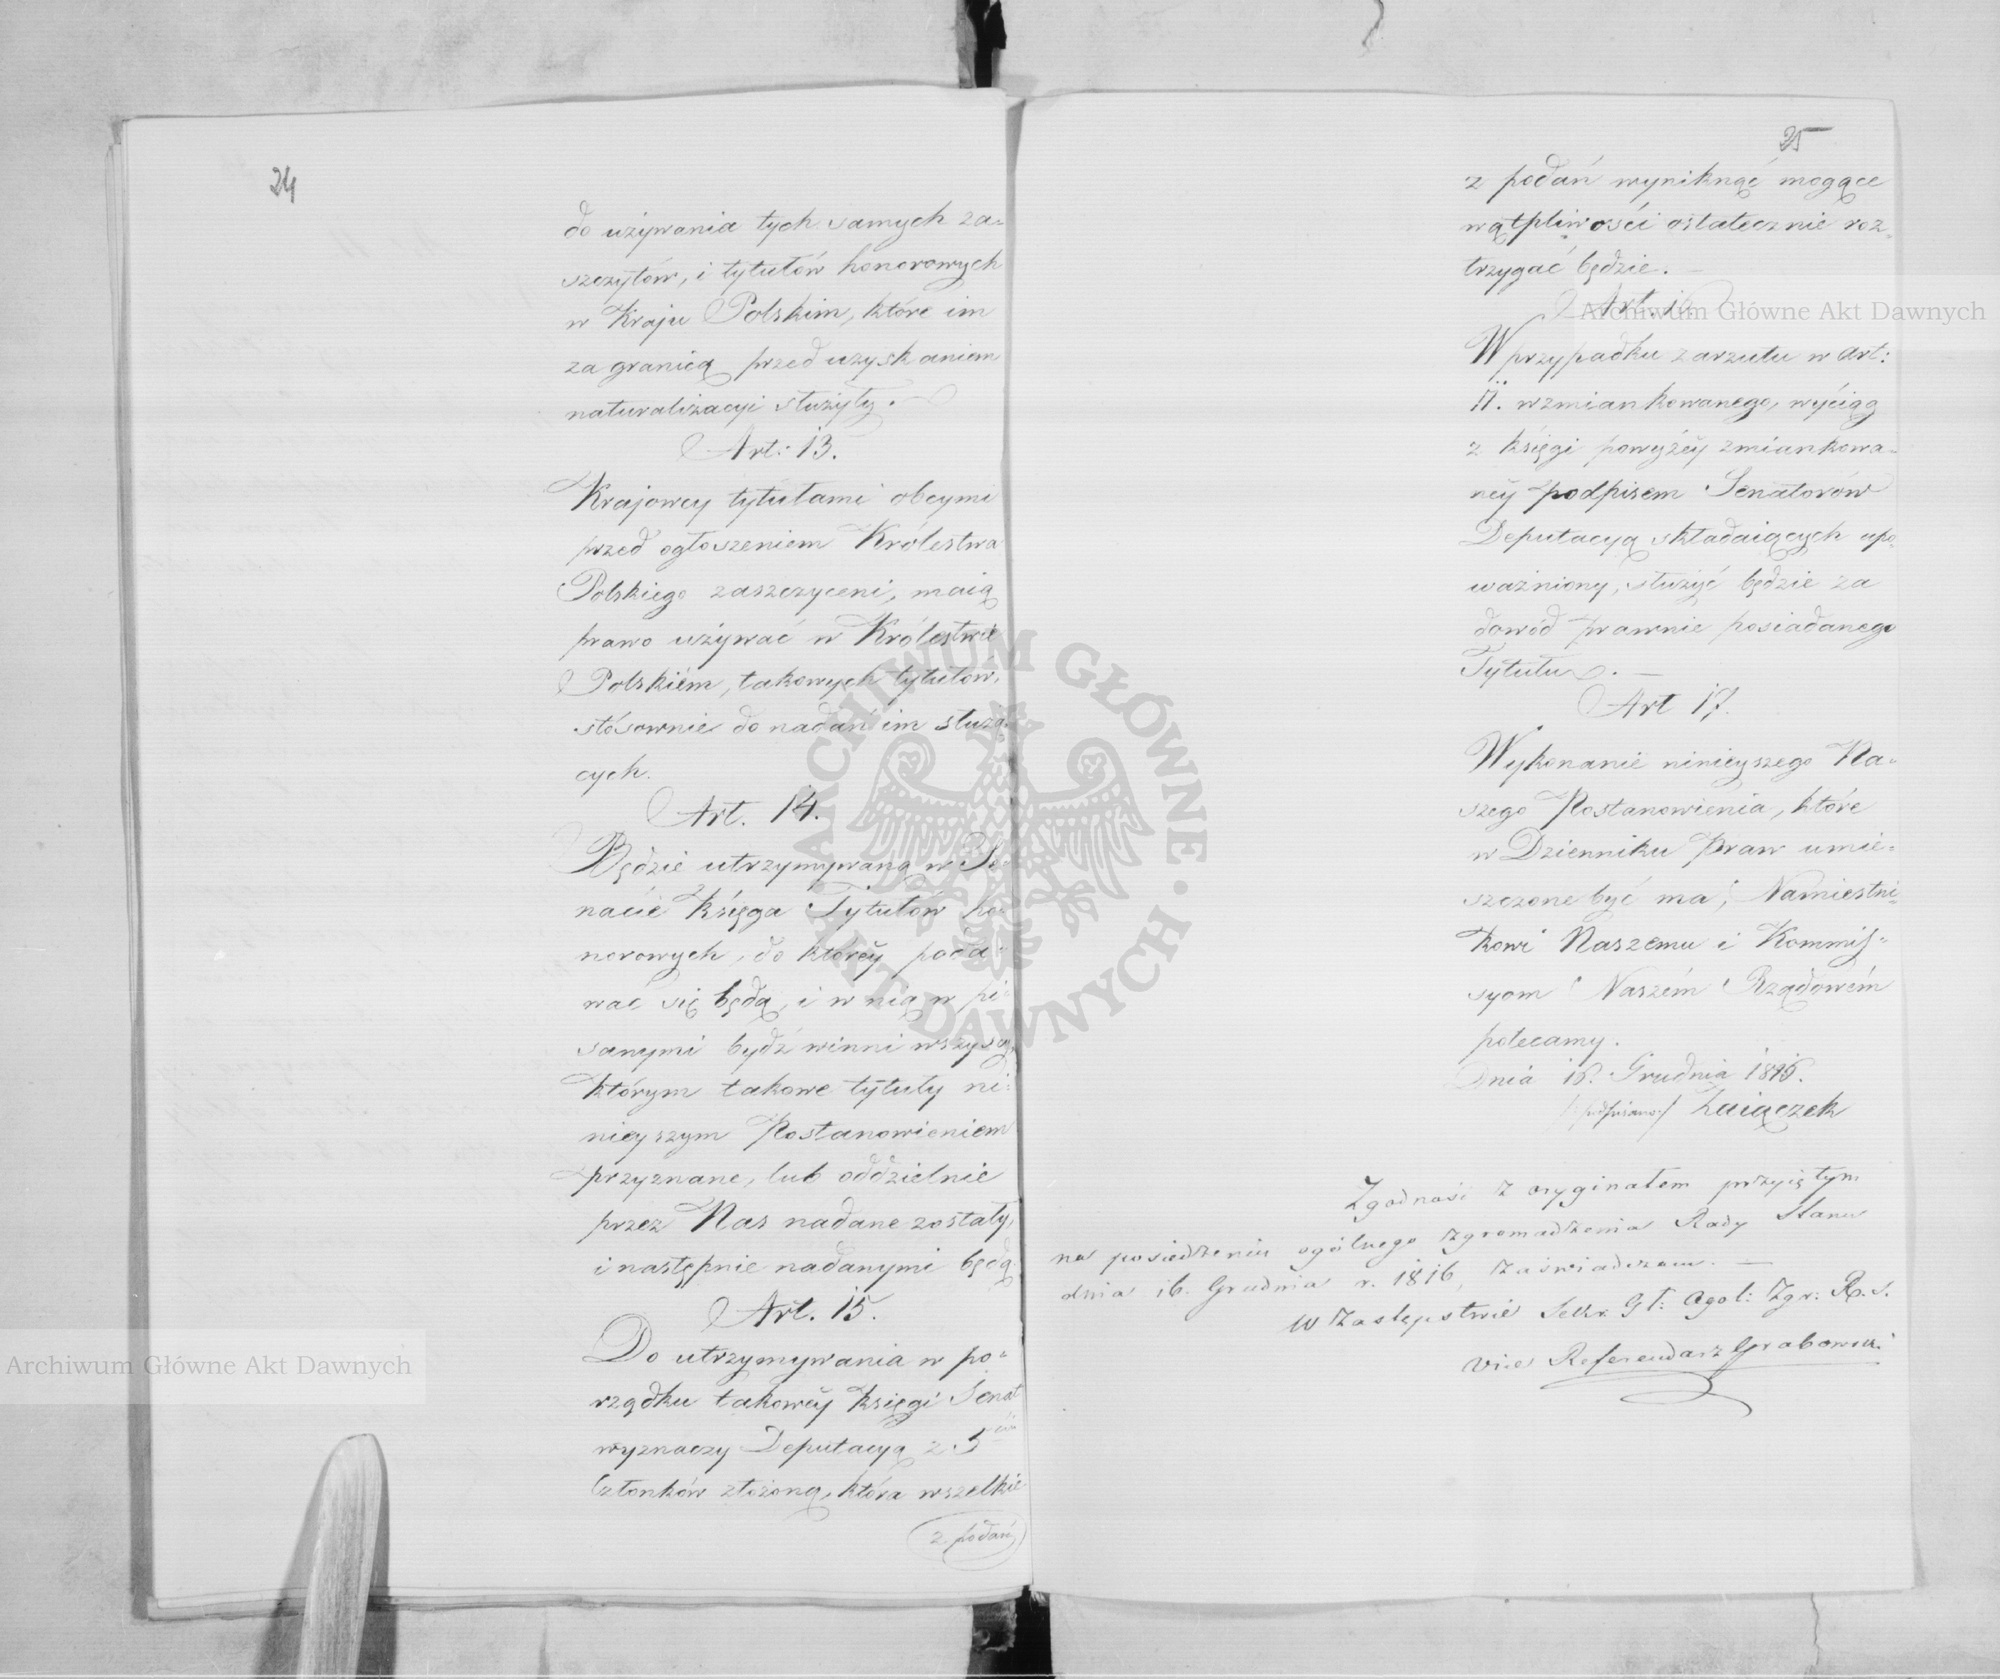 24
do używania tych samych za-
szczytów, i tytułów honorowych
w Kraju Polskim, które im
za granicą przed uzyskaniem
naturalizacyi służyły.
Art: 13.
Krajowcy tytułami obcymi
przed ogłoszeniem Królestwa
Polskiego zaszczyceni, maią
prawo używać w Królestwie
Polskiém, takowych tytułów,
stósownie do nadań im służą-
cych.
Art. 14.
Będzie utrzymywaną w Se-
nacie Księga Tytułów ho-
norowych, do którey poda-
wać się będą, i w nią w pi-
sanymi bydź winni wszyscy,
którym takowe tytuły ni-
nieyszym Postanowieniem
przyznane, lub oddzielnie
przez Nas nadane zostały,
i następnie nadanymi będą.
Art. 15.
Do utrzymywania w po-
rządku takowey księgi Senat
wyznaczy Deputacyą z 5ciu
Członków złożoną, która wszelkie
z podań
25
z podań wyniknąć mogące
wątpliwości ostatecznie roz-
trzygać będzie.
Art.
W przypadku zarzutu w art:
11. wzmiankowanego, wyciąg
z księgi powyżey zmiankowa-
ney podpisem Senatorów
Deputacyą składaiących upo-
ważniony, służyć będzie za
dowód prawnie posiadanego
Tytułu.
Art 17.
Wykonanie ninieyszego Na-
szego Postanowienia, które
w Dzienniku Praw umie-
szczone być ma, Namiestni-
kowi Naszemu i Kommis-
syom Naszém Rządowém
polecamy.
Dnia 16. Grudnia 1816.
/podpisano/ Zaiączek
Zgodność z oryginałem przyiętym
na posiedzeniu ogólnego zgromadzenia Rady Stanu
dnia 16. Grudnia r. 1816, zaświadczam.
W Zastępstwie Sekr. Gł: Ogol: Zgr: R. S.
Vice Referendarz Grabowski
Archiwum Główne Akt Dawnych
Archiwum Główne Akt Dawnych
ARCHIWUM GŁÓWNE · AKT DAWNYCH ·